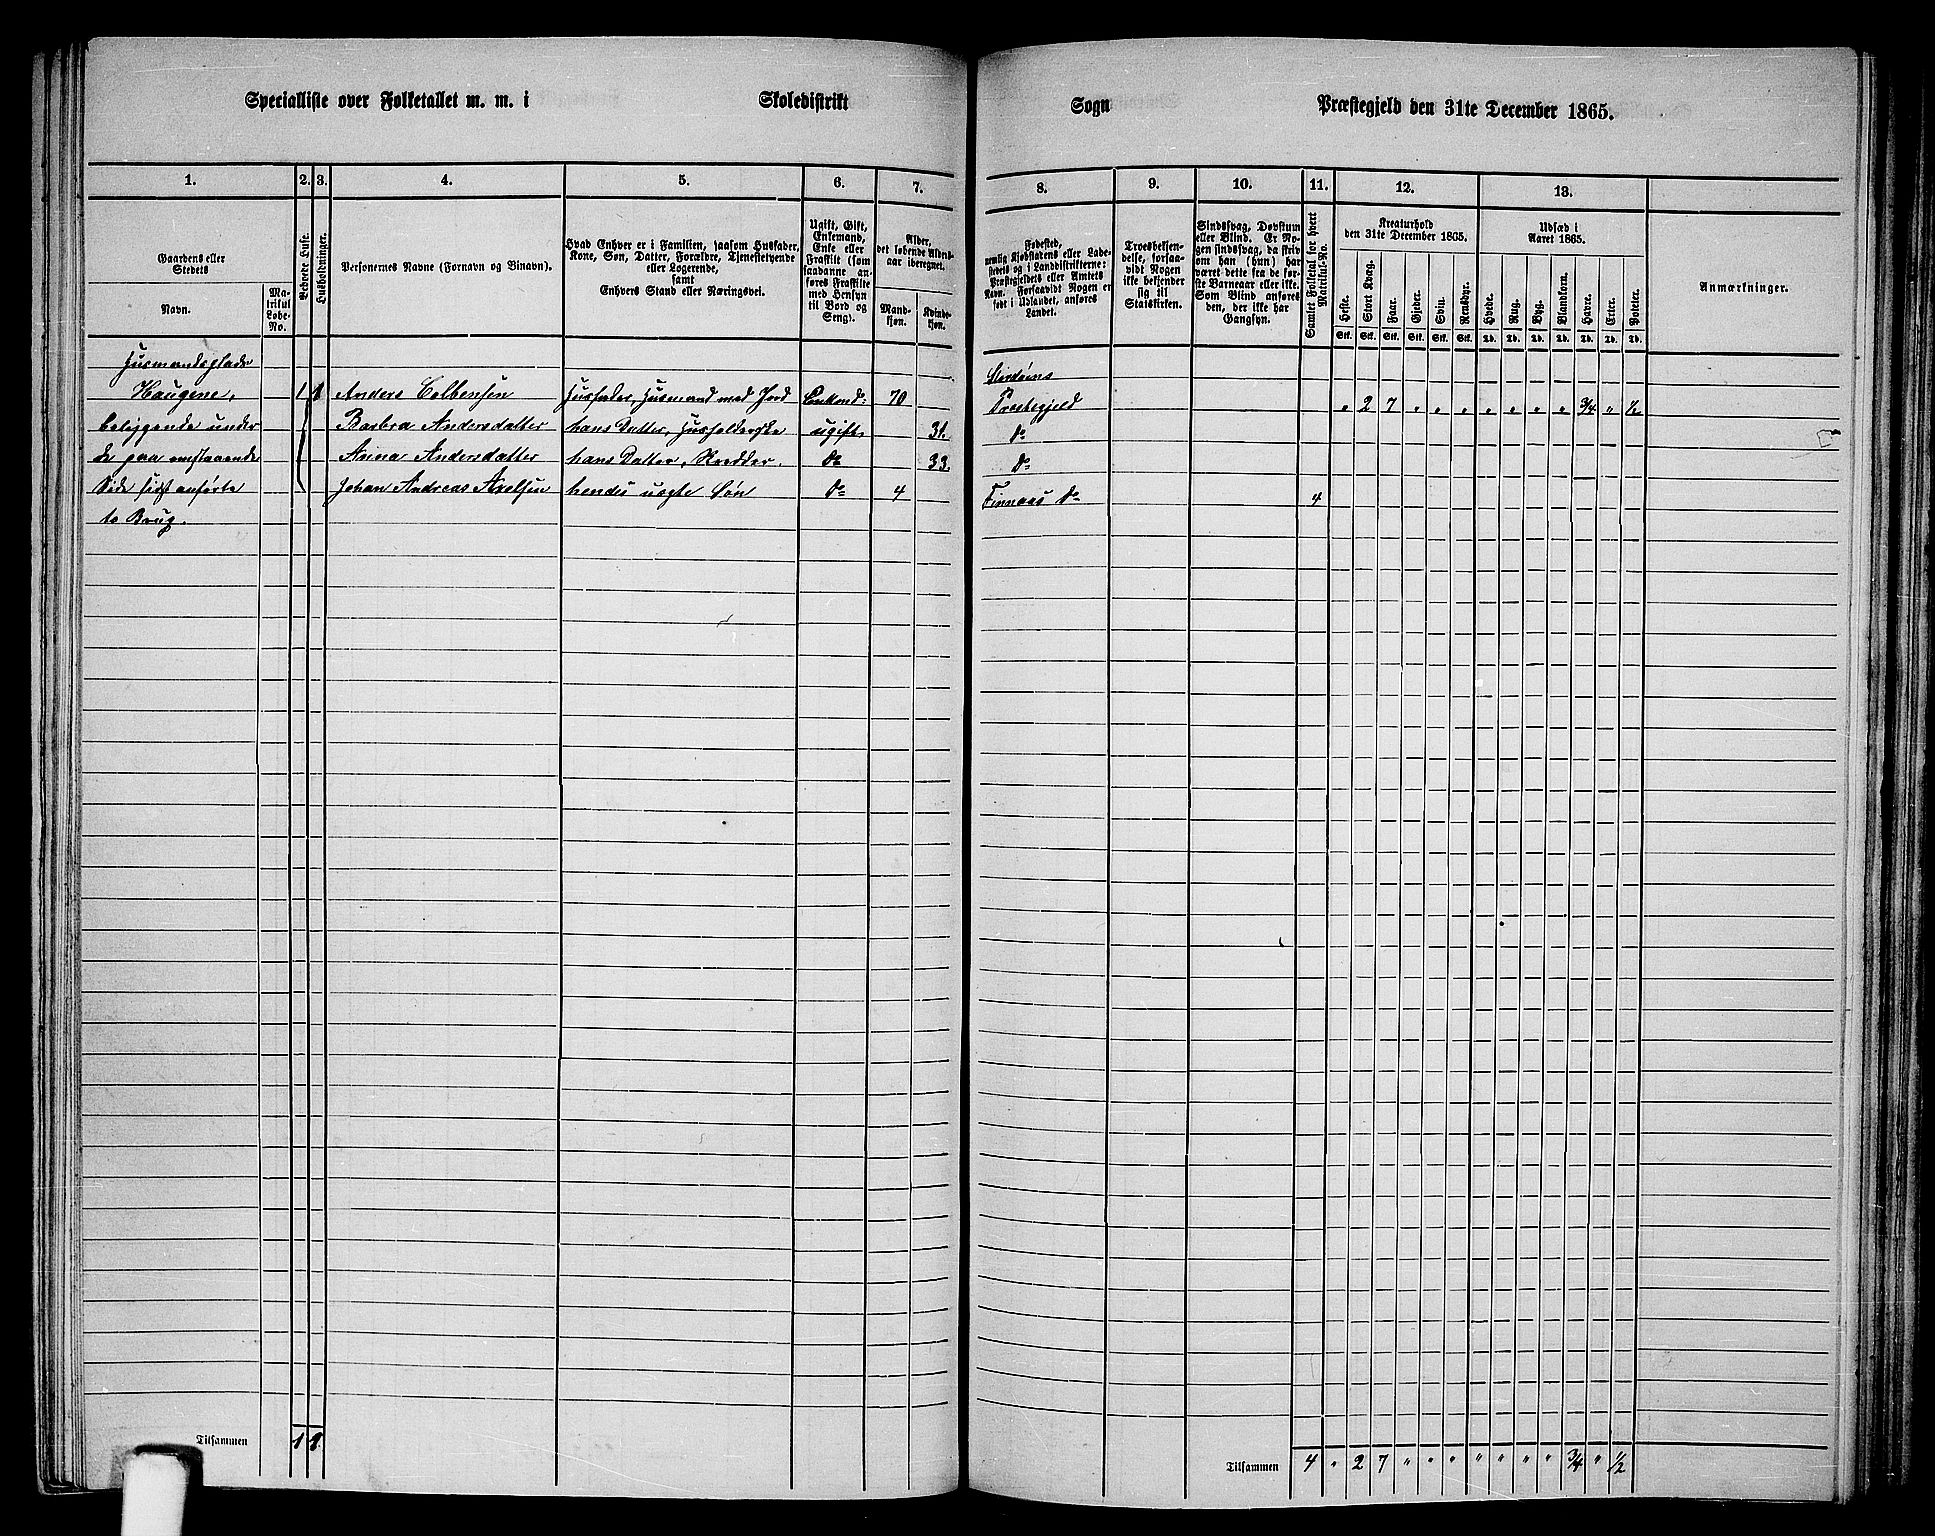 Specialliste over Folketallet m. m. i Skoledistrikt Sogn Præstegjeld den 31te December 1865.
1. 2. 3. 4. 5. 6. 7. 8. 9. 10. 11. 12. 13.
Gaardens eller
Stedets
Navn.
Ma-
trikul
Løbe-
No.
Beboede Huse.
Husholdninger.
Personernes Navne (Fornavn og Binavn).
Hvad Enhver er i Familien, saasom Husfader,
Kone, Søn, Datter, Forældre, Tjenestetyende
eller Logerende,
samt
Enhvers Stand eller Næringsvei.
Ugift, Gift,
Enkemand,
Enke eller
Fraskilt (som
saadanne an-
føres Fraskilte
med Hensyn
til Bord og
Seng).
Alder,
det løbende Alders-
aar iberegnet.
Mand-
kjøn.
Kvinde-
kjøn.
Fødested,
nemlig Kjøbstadens eller Lade-
stedets og i Landdistrikterne:
Præstegjeldets eller Amtets
Navn. Forsaavidt Nogen er
født i Udlandet, anføres
Landet.
Troesbekjen-
delse, forsaa-
vidt Nogen
ikke bekjender
sig til
Statskirken.
Sindssvag, Døvstum
eller Blind. Er No-
gen sindssvag, da skriv
om han (hun) har
været dette fra de før-
ste Barneaar eller ikke.
Som Blind anføres
den, der ikke har
Gangsyn.
Samlet Folketal for hvert
Matrikul-No.
Kreaturhold
den 31te December 1865.
Heste. Stort Kvæg. Faar. Gjeder. Svin. Rensdyr.
Stk. Stk. Stk. Stk. Stk. Stk.
Udsæd i
Aaret 1865.
Hvede. Rug. Byg. Blandkorn. Havre. Erter. Poteter.
Td. Td. Td. Td. Td. Td. Td.
Anmærkninger.
Husmandsplads Stordøens
Haugene, 1 1 Anders Colbensen Husfader, Husmand med Jord Enkemd: 70 Præstegjeld " 2 7 " " " " " " " 3/4 " 1/2
beliggende under Barbra Andersdatter hans Datter, Husholderske ugift 31. do
de paa omstaaende Anna Andersdatter hans Datter, do 33 do
Side sidst anførte Johan Andreas Axelsen hendes uægte Søn do 4 Finnaas do 4
to Brug.
Tilsammen 1 1 Tilsammen 4 " 2 7 " " " " " " " 3/4 " 1/2